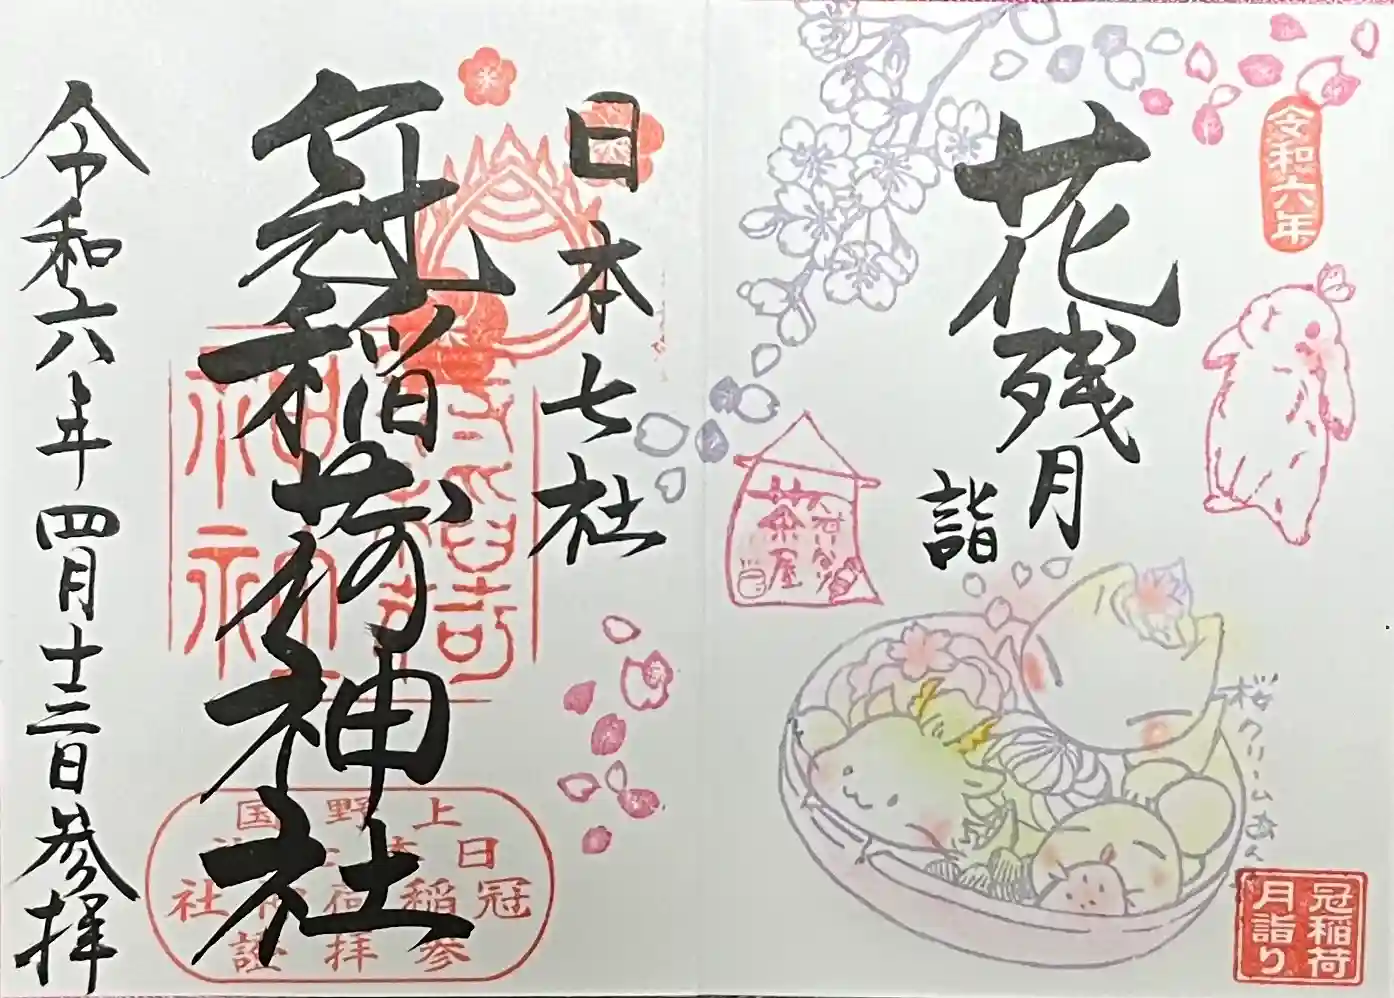 令和六年
花残月
詣
大根わり
茶屋
桜クリームあん
冠稲荷
月詣り
日本七社
冠稲荷神社
上野国
日本七社
冠稲荷神社
参拝證
令和六年四月十三日参拝